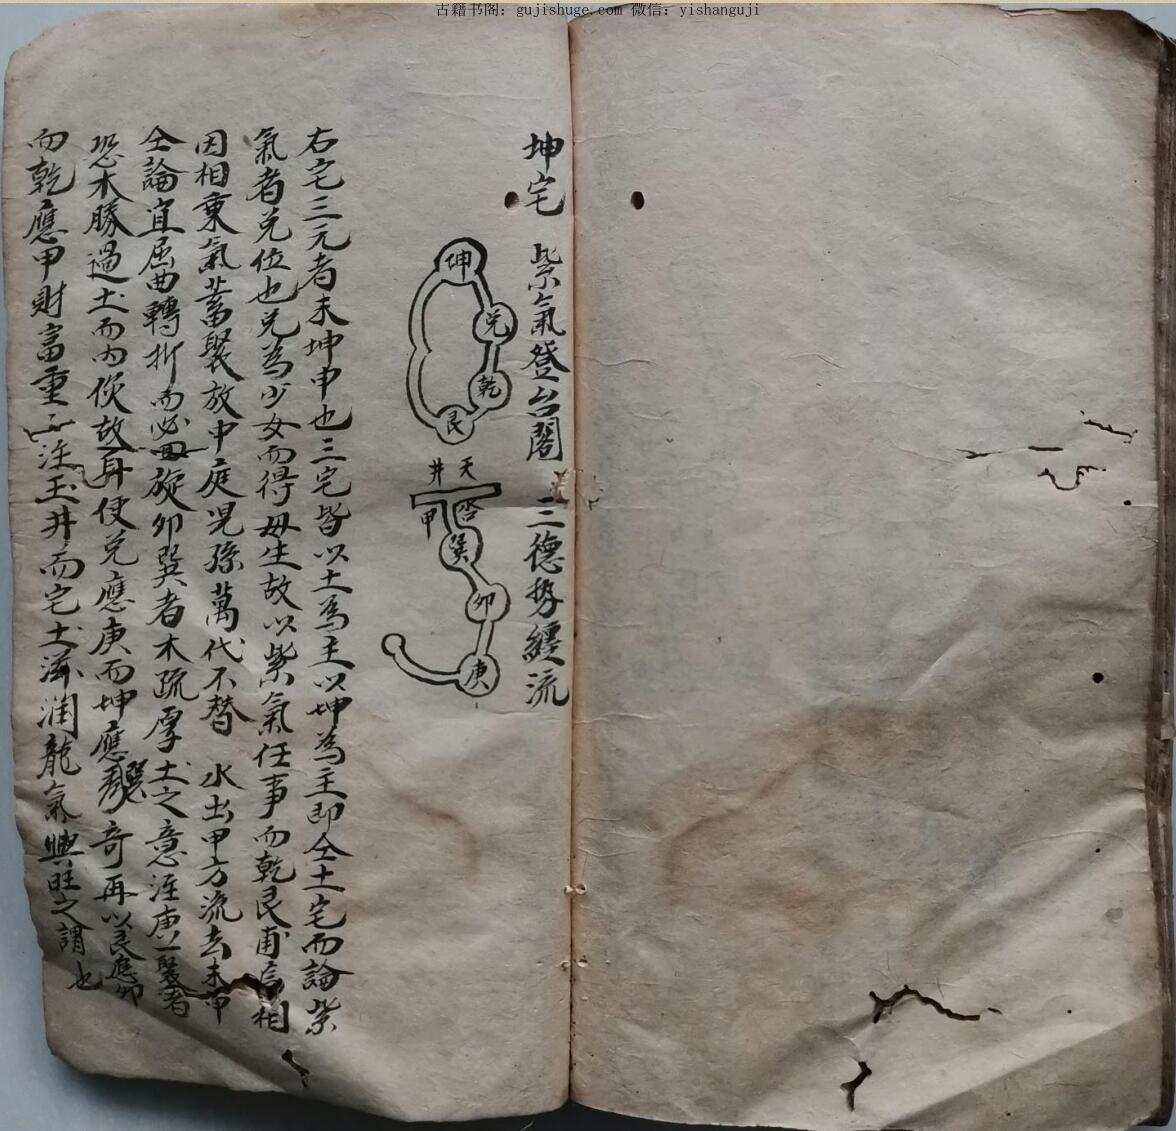 古籍书阁: gujishuge.com 微信: yishanguji
坤宅 紫氣登台閣 三德勢纏流
坤
兌
乾
艮
天井
甲
巽
卯
庚
右宅三元者未坤申也三宅皆以土為主以坤為主即仝土宅而論紫
氣者兌位也兌為少女而得母生故以紫氣任事而乾艮相
因相乗氣蓄聚放中庭児孫萬代不替 水出甲方流去未
仝論宜屈曲轉折而必旋卯巽者木疏厚土之意注庚一聚者
恐木勝過土而内使兌應庚而坤應奇再以艮應卯
而乾應甲財富重注玉井而宅土滋潤龍氣興旺之謂也